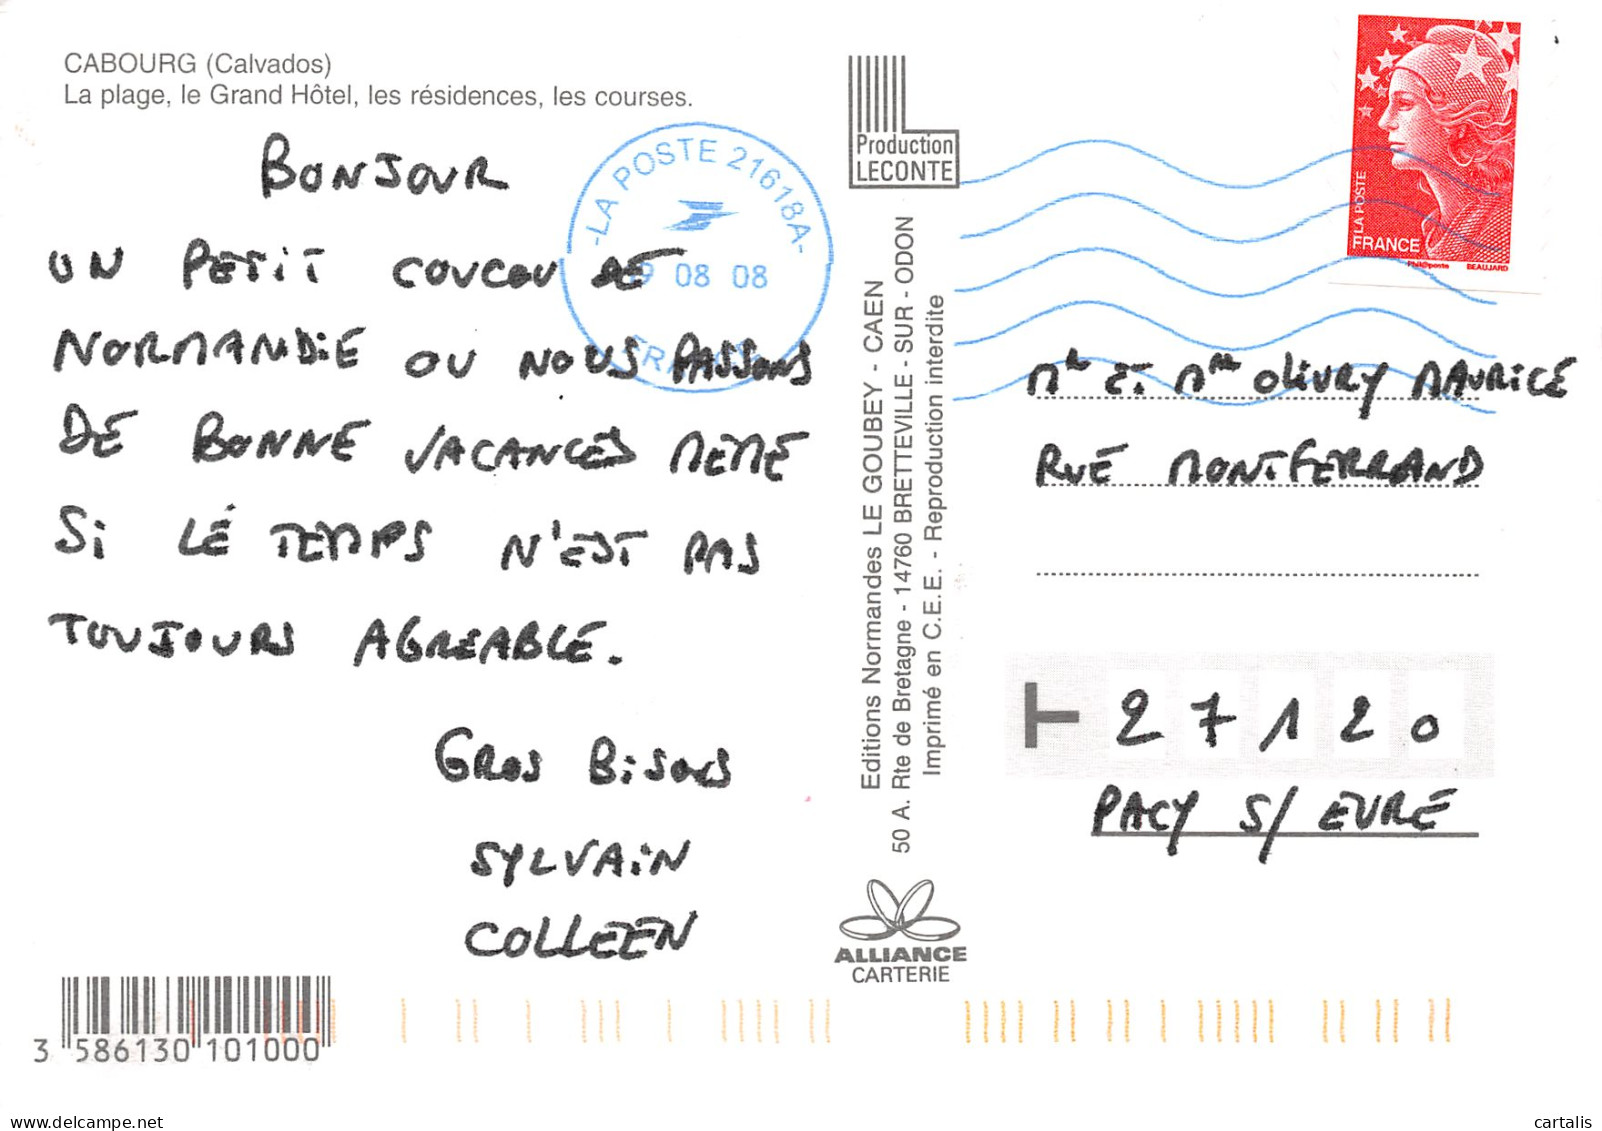 CABOURG (Calvados)
La plage, le Grand Hôtel, les résidences, les courses.
BONJOUR
UN PETIT COUCOU DE
NORMANDIE OU NOUS PASSONS
DE BONNE VACANCES MEME
Si LE TEMPS N'EST PAS
TOUJOURS AGREABLE.
GROS BISOUS
SYLVAIN
COLLEEN
3 586130 101000
-LA POSTE 21618A-
9 08 08
FRANCE
Production
LECONTE
Editions Normandes LE GOUBEY - CAEN
50 A. Rte de Bretagne - 14760 BRETTEVILLE - SUR - ODON
Imprimé en C.E.E. - Reproduction interdite
ALLIANCE
CARTERIE
LA POSTE
FRANCE
Phil@poste BEAUJARD
Mr ET Mme OLIVRY MAURICE
RUE MONTFERRAND
27120
PACY S/ EURE
cartalis
delcampe.net